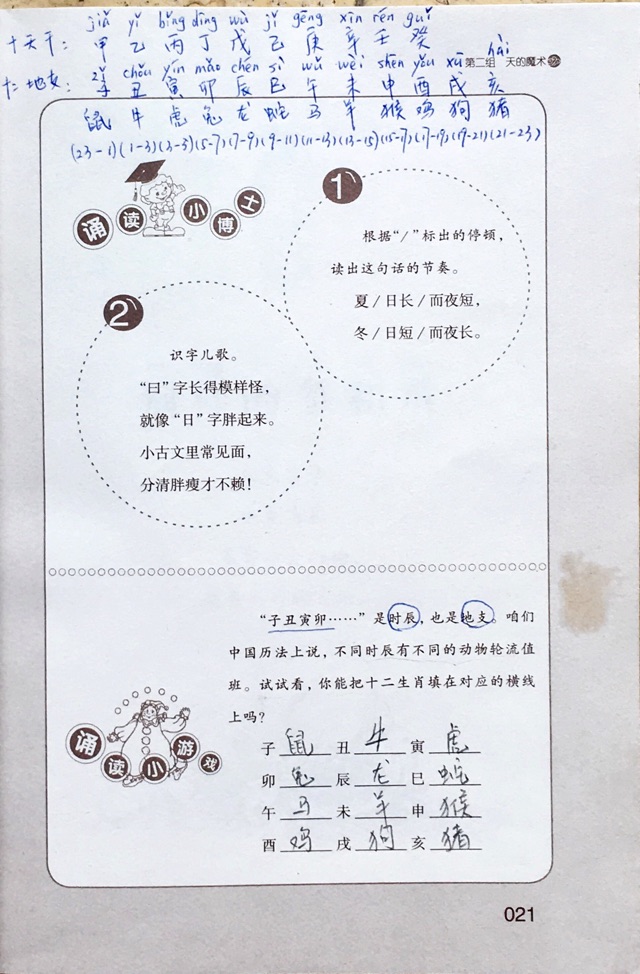 jiǎ yǐ bǐng dīng wù jǐ gēng xīn rén guǐ
十天干: 甲 乙 丙 丁 戊 己 庚 辛 壬 癸
第二组 天的魔术
zǐ chǒu yín mǎo chén sì wǔ wèi shēn yǒu xū hài
十二地支: 子 丑 寅 卯 辰 巳 午 未 申 酉 戌 亥
鼠 牛 虎 兔 龙 蛇 马 羊 猴 鸡 狗 猪
(23-1)(1-3)(3-5)(5-7)(7-9)(9-11)(11-13)(13-15)(15-17)(17-19)(19-21)(21-23)
诵读小博士
1
根据“/”标出的停顿，
读出这句话的节奏。
夏/日长/而夜短，
冬/日短/而夜长。
2
识字儿歌。
“曰”字长得模样怪，
就像“日”字胖起来。
小古文里常见面，
分清胖瘦才不赖！
“子丑寅卯……”是时辰，也是地支。咱们
中国历法上说，不同时辰有不同的动物轮流值
班。试试看，你能把十二生肖填在对应的横线
上吗？
诵读小游戏
子 鼠 丑 牛 寅 虎
卯 兔 辰 龙 巳 蛇
午 马 未 羊 申 猴
酉 鸡 戌 狗 亥 猪
021